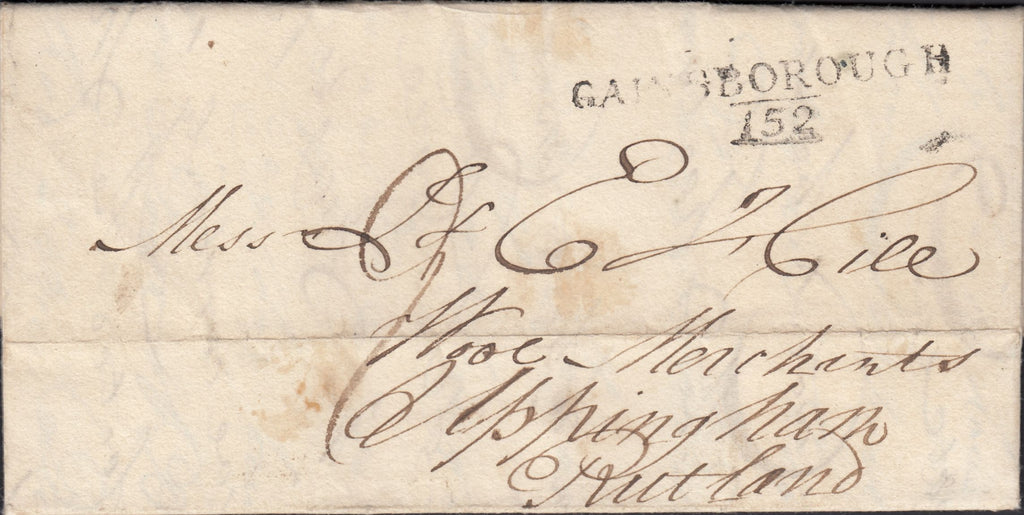 GAINSBOROUGH
152
Mess & E Hill
Wool Merchants
Uppingham
Rutland